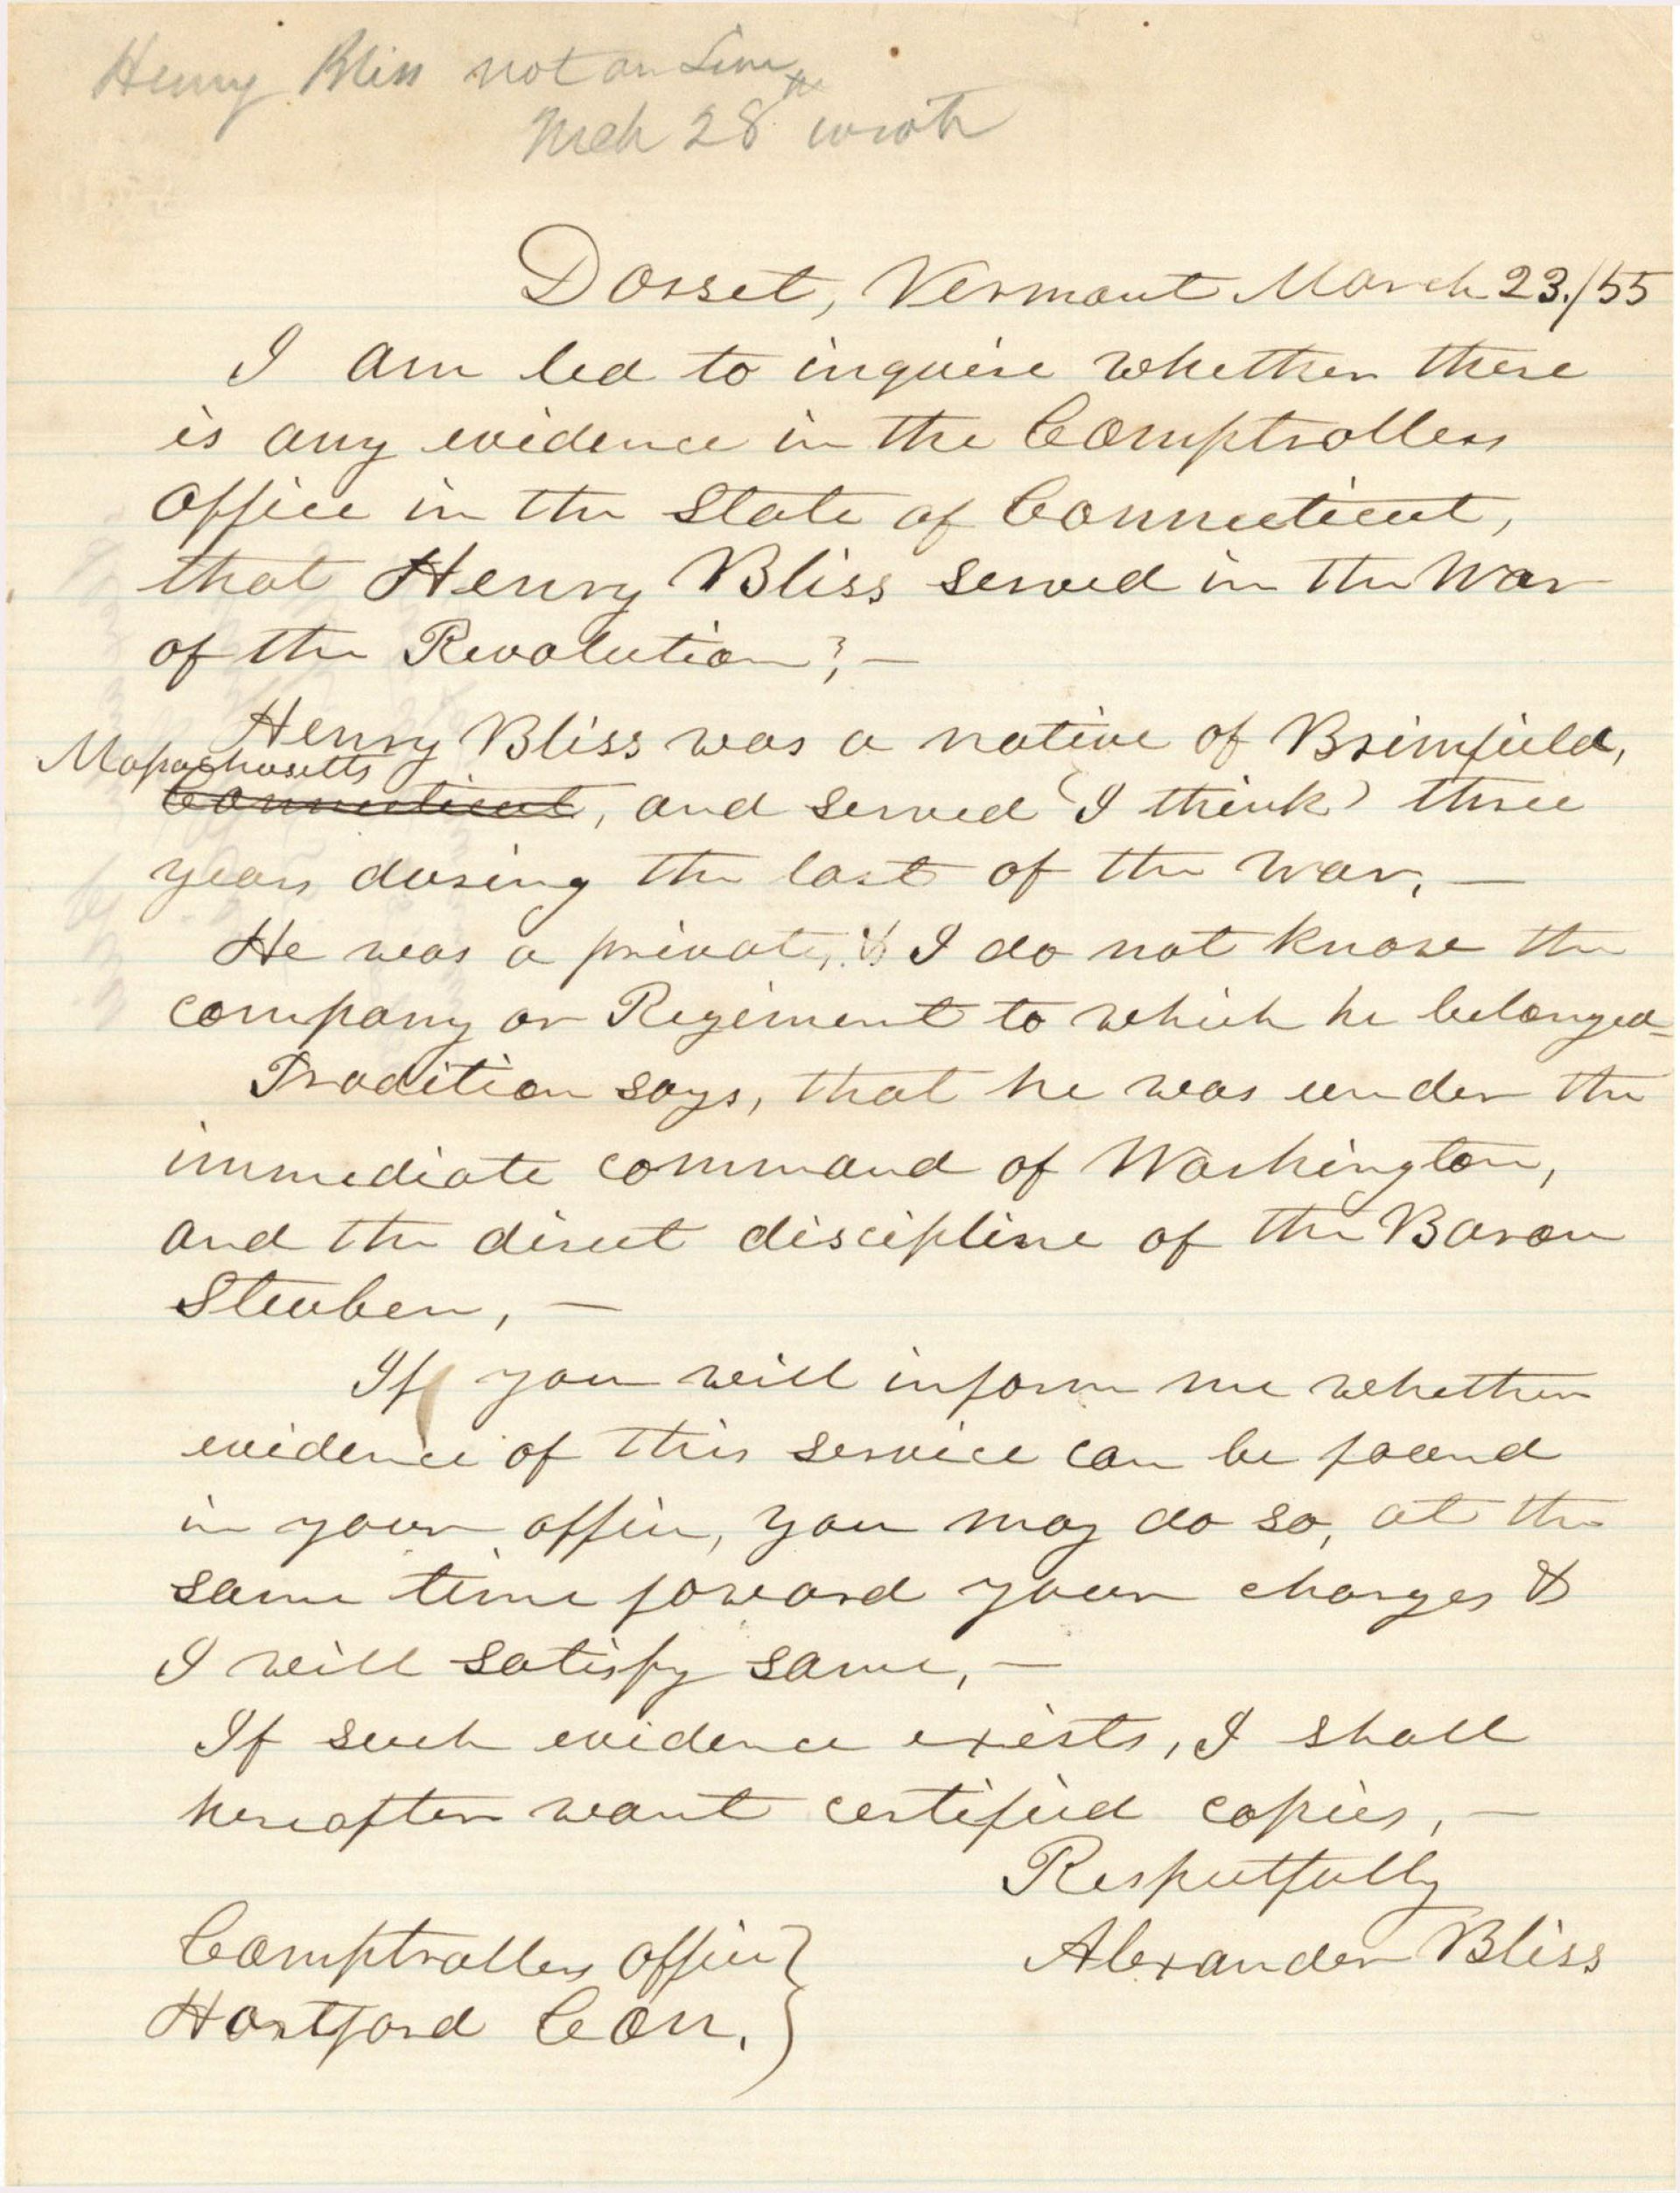 Henry Bliss not on
Mch 28 wrote
Dorset, Vermont March 23./55
I am led to inquire whether there
is any evidence in the Comptrollers
Office in the State of Connecticut,
that Henry Bliss served in the War
of the Revolution?, —
Henry Bliss was a native of Brimfield,
Massachusetts
Connecticut, and served (I think) three
years during the last of the war, —
He was a private, & I do not know the
company or Regiment to which he belonged—
Tradition says, that he was under the
immediate command of Washington,
and the direct discipline of the Baron
Steuben, —
If you will inform me whether
evidence of this service can be found
in your office, you may do so, at the
same time foward your charges &
I will satisfy same, —
If such evidence exists, I shall
hereafter want certified copies, —
Respectfully
Alexander Bliss
Comptrollers Office
Hartford Con.